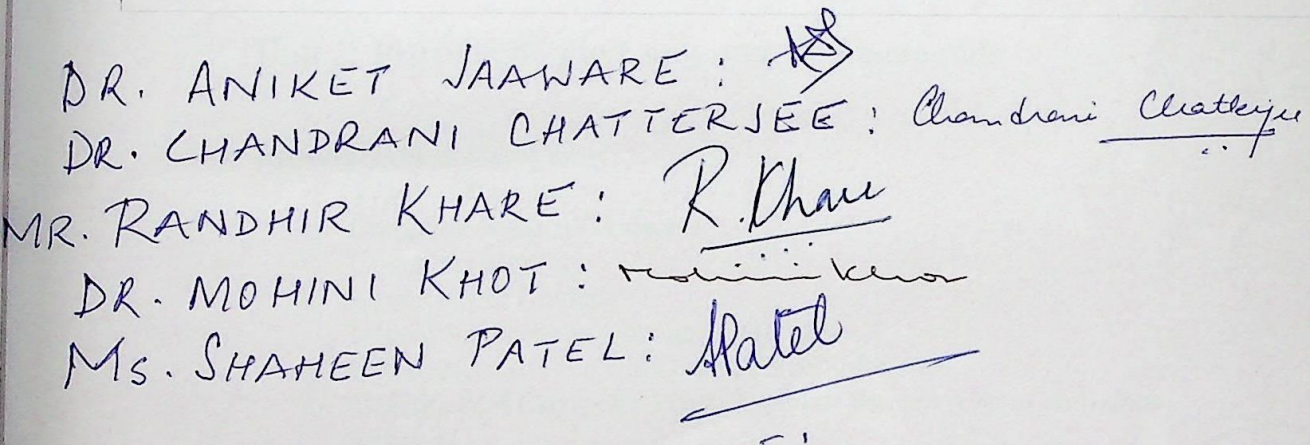 DR. ANIKET JAAWARE :
DR. CHANDRANI CHATTERJEE : Chandrani Chatterjee
MR. RANDHIR KHARE : R. Khare
DR. MOHINI KHOT : Mohini Khot
MS. SHAHEEN PATEL : SPatel